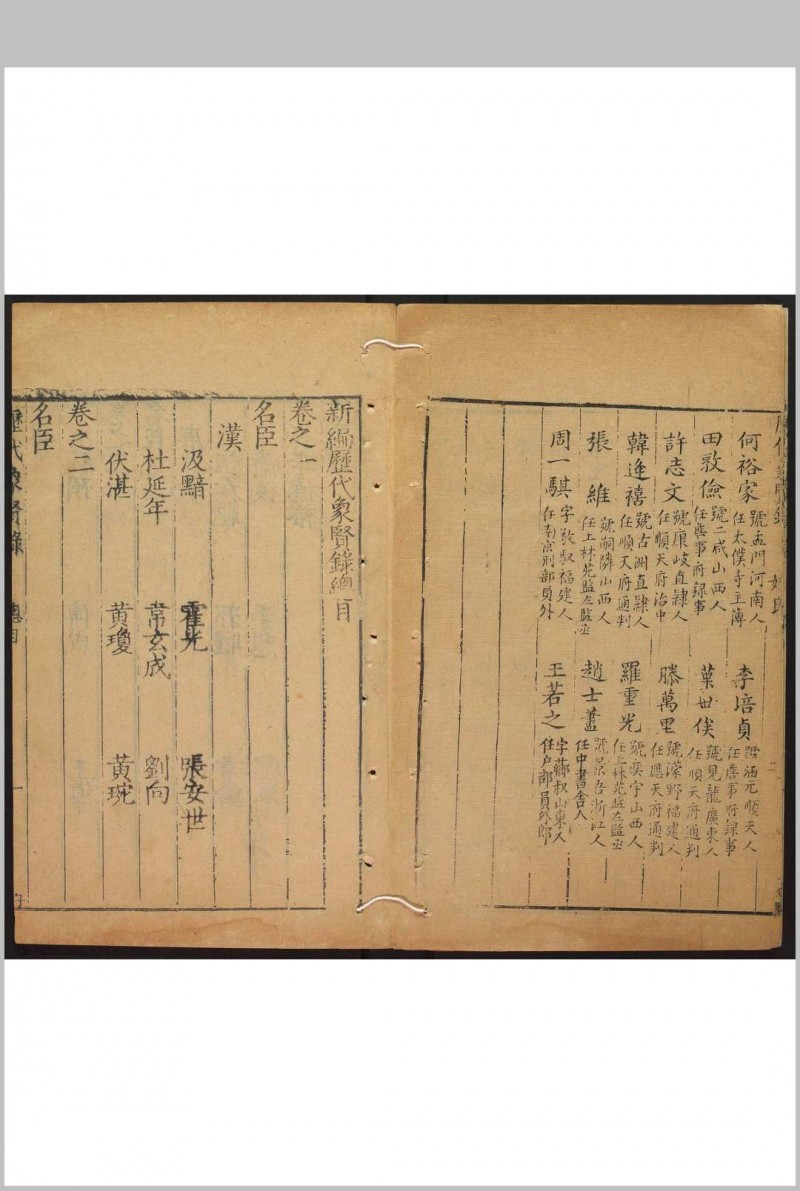 何裕家 號孟門河南人 任太僕寺主簿
李培貞 號涵元順天人 任詹事府録事
田敦儉 號二咸山西人 任詹事府録事
葉世俟 號見龍廣東人 任順天府通判
許志文 號康岐直隷人 任順天府治中
滕萬里 號濛野福建人 任應天府通判
韓逢禧 號古洲直隷人 任順天府通判
羅重光 號奕宇山西人 任上林苑監左監丞
張維 號嗣隣山西人 任上林苑監左監丞
趙士 號景吾浙江人 任中書舎人
周一騏 字敬馭福建人 任南京刑部員外
王若之 字薌叔山東人 任户部員外郎
新編歷代象賢錄總目
卷之一
名臣
漢
汲黯 霍光 張安世
杜延年 常玄成 劉向
伏湛 黄瓊 黄琬
卷之二
名臣
歷代象賢錄 總目 一